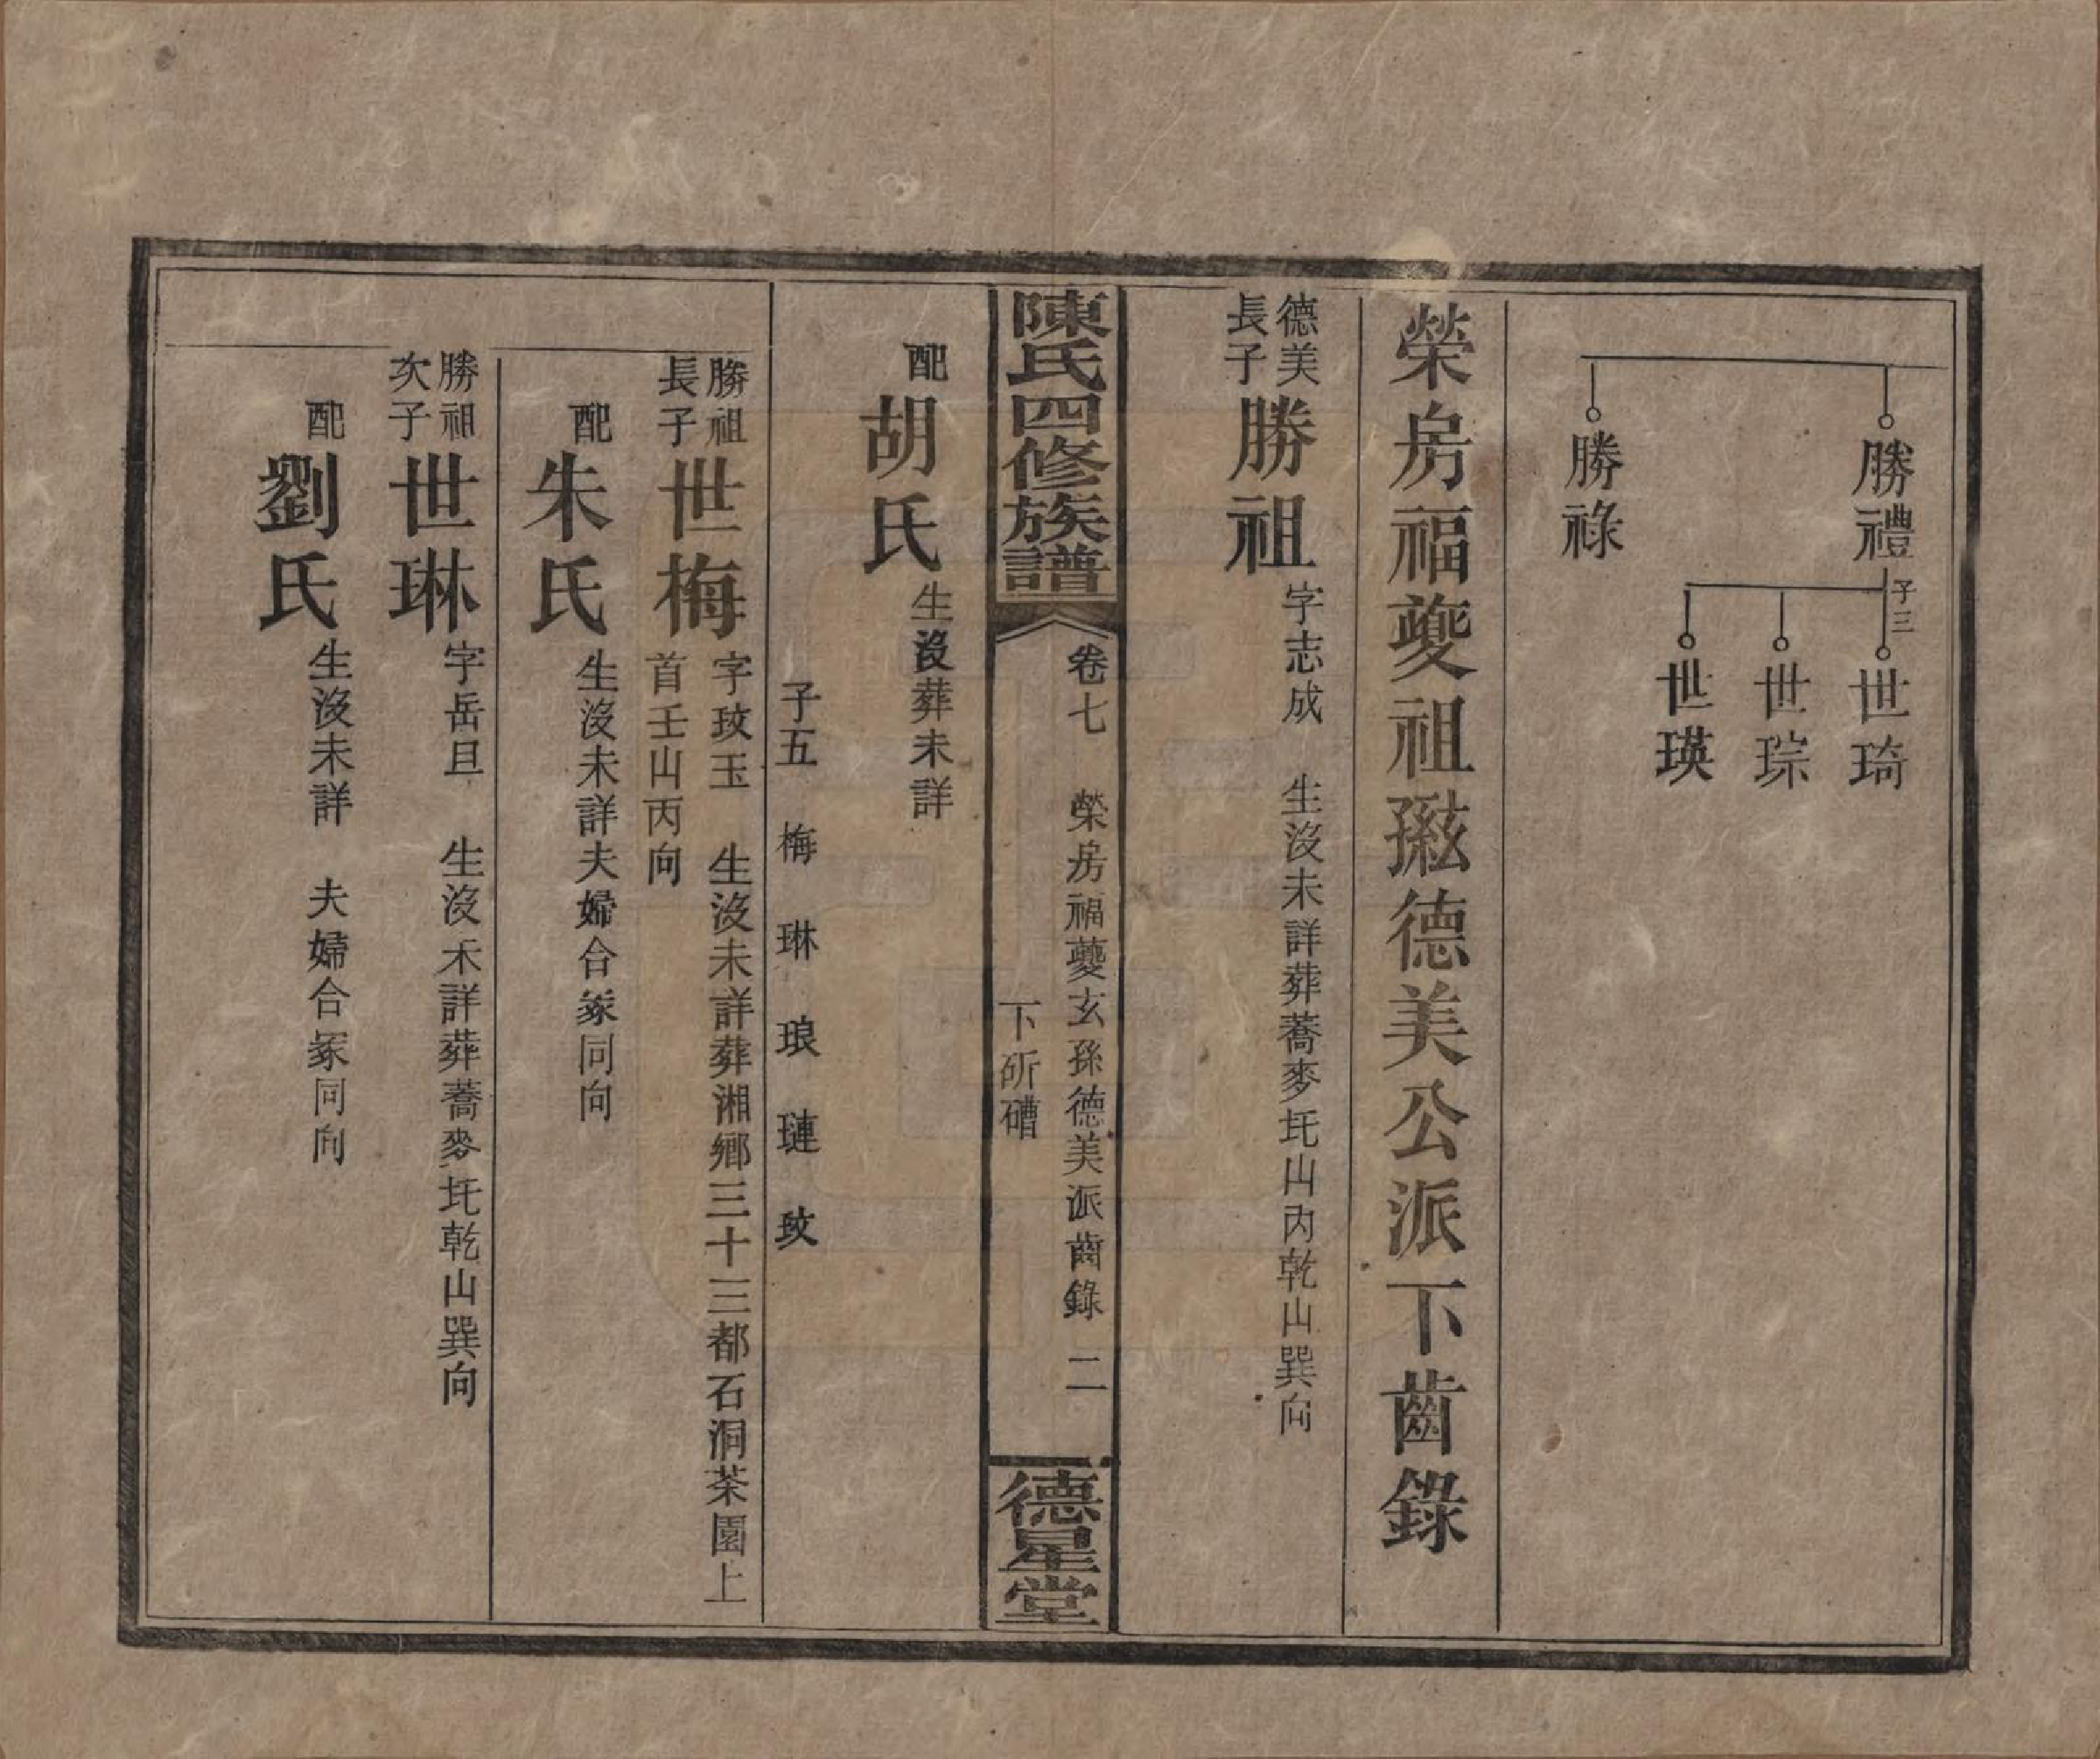 勝禮
子三
世琦
世琮
世瑛
勝祿
榮房福夔祖孫玆德美公派下齒錄
德美
長子
勝祖
字志成 生沒未詳葬蕎麥圫山內乾山巽向
陳氏四修族譜
卷七 榮房福夔玄孫德美派齒錄 二
下斫磄
德星堂
配
胡氏
生沒葬未詳
子五 梅 琳 琅 璉 玟
勝祖
長子
世梅
字玟玉 生沒未詳葬湘鄉三十三都石洞茶園上
首壬山丙向
配
朱氏
生沒未詳夫婦合冢同向
勝祖
次子
世琳
字岳旦 生沒未詳葬蕎麥圫乾山巽向
配
劉氏
生沒未詳 夫婦合冢同向